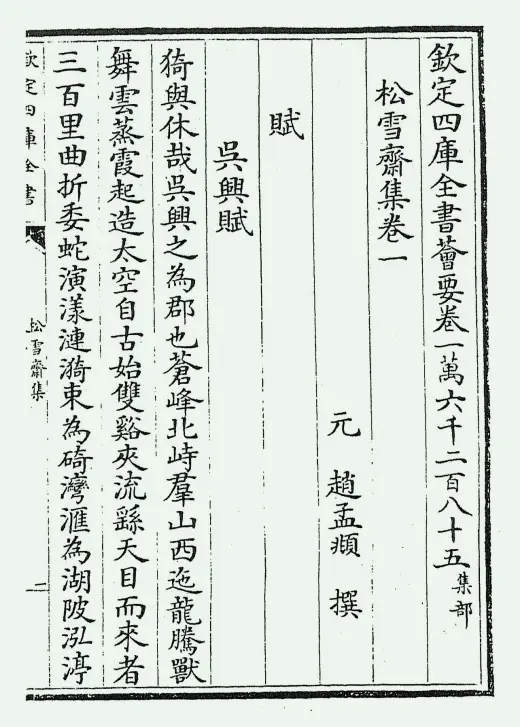 欽定四庫全書薈要卷一萬六千二百八十五集部
松雪齋集卷一
元 趙孟頫 撰
賦
吳興賦
猗與休哉吳興之為郡也蒼峰北峙羣山西迤龍騰獸
舞雲蒸霞起造太空自古始雙谿夾流繇天目而來者
三百里曲折委蛇演漾漣漪束為碕灣滙為湖陂泓渟
欽定四庫全書
松雪齋集
二